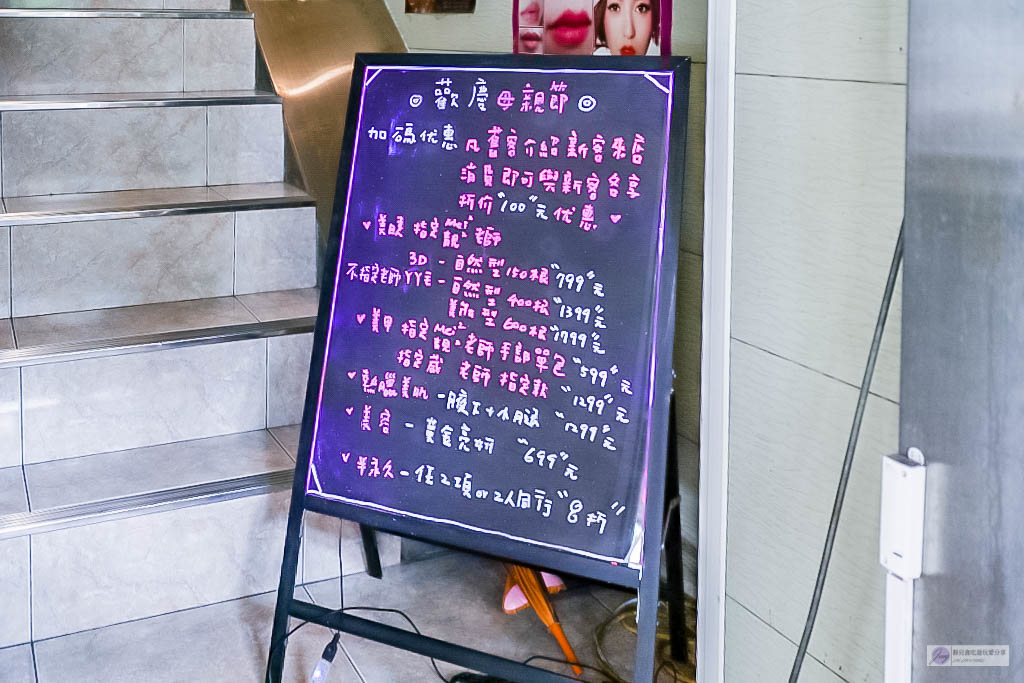 ◎ 歡慶母親節 ◎
加碼优惠 凡舊客介紹新客來店
消費即可與新客各享
折价“100”元优惠 ♥
♥ 美睫 指定 Mei² 靚² 老師
3D - 自然型 150根 “799”元
不指定老師 YY毛 - 自然型 400根 “1399”元
美貓型 600根 “1799”元
♥ 美甲 指定 Mei² 靚² 老師 手部單色 “599”元
指定葳 老師 指定款 “1299”元
♥ 熱蠟美肌 - 腋下+小腿 “1299”元
♥ 美容 - “699”元
♥ 半永久 - 任2項 or 2人同行 “8折”